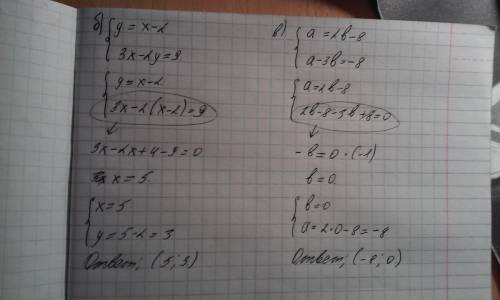 б) { y = x-2
3x-2y=9
{ y = x-2
3x-2(x-2)=9
↓
3x-2x+4-9=0
x=5.
{ x=5
y=5-2=3
Ответ; (5;3)
в) { a=2b-8
a-3b=-8
{ a=2b-8
2b-8-3b+8=0
↓
-b=0 ·(-1)
b=0.
{ b=0
a=2·0-8=-8
Ответ; (-8;0)